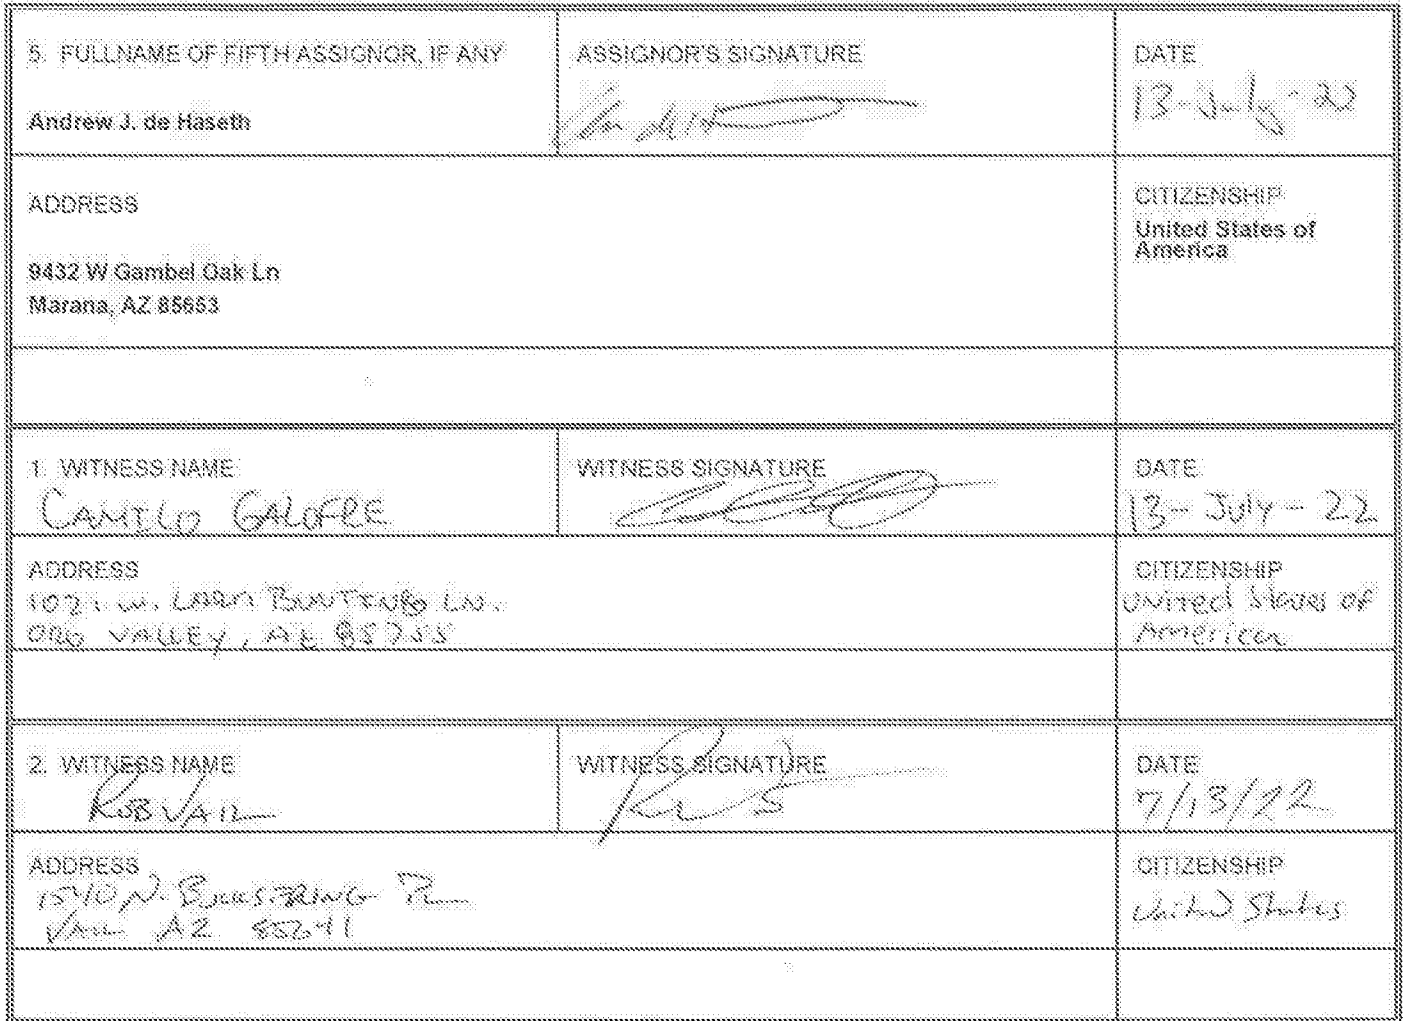 5. FULLNAME OF FIFTH ASSIGNOR, IF ANY
Andrew J. de Haseth
ASSIGNOR'S SIGNATURE
DATE
13-July-22
ADDRESS
9432 W Gambel Oak Ln
Marana, AZ 85653
CITIZENSHIP
United States of
America
1. WITNESS NAME
CAMILO GALOFRE
WITNESS SIGNATURE
DATE
13-July-22
ADDRESS
W. BUNTING LN.
ORO VALLEY, AZ 85755
CITIZENSHIP
United States of
America
2. WITNESS NAME
ROB VAIL
WITNESS SIGNATURE
DATE
7/13/22
ADDRESS
1540 N.
VAIL AZ 85641
CITIZENSHIP
United States